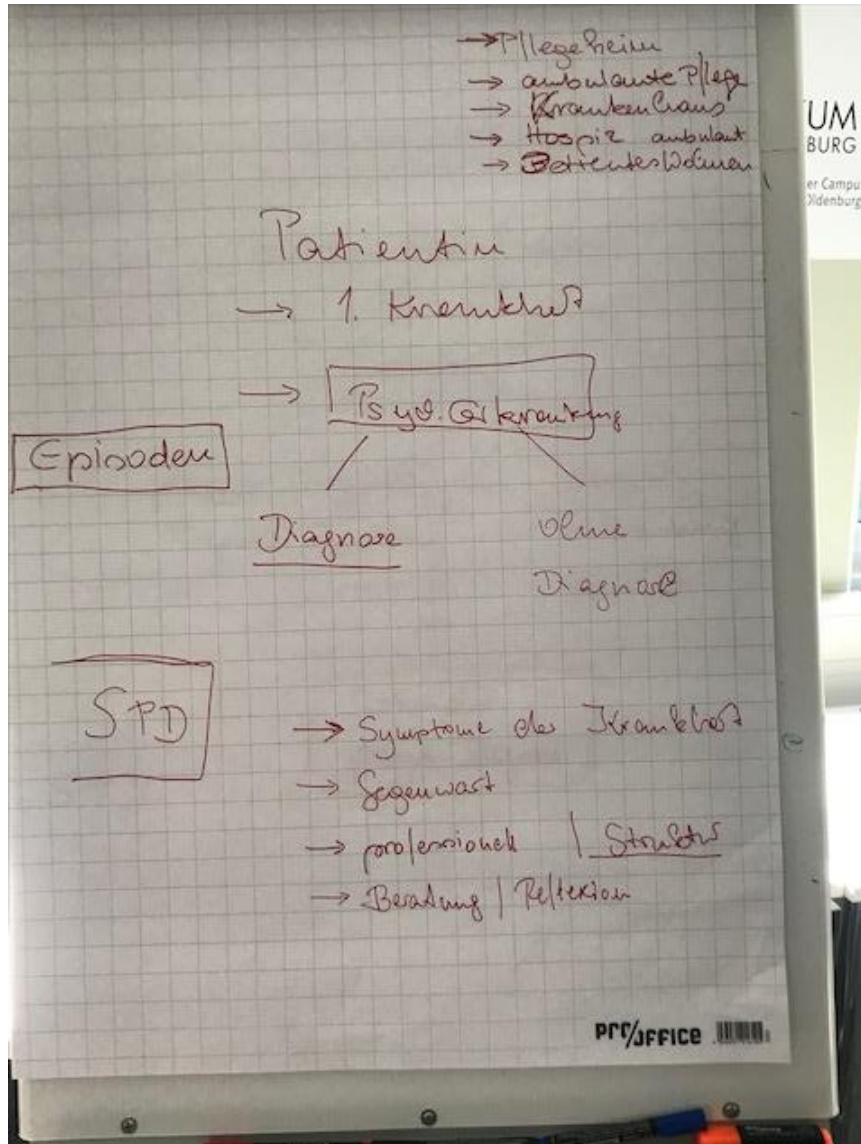 → Pflegeheim
→ ambulante Pflege
→ Krankenhaus
→ Hospiz ambulant
→ Betreutes Wohnen
UM
BURG
er Campu
Oldenburg
Patientin
→ 1. Krankheit
→ Psych. Erkrankung
Episoden
Diagnose
ohne
Diagnose
SPD
→ Symptome der Krankheit
→ Gegenwart
→ professionell | Struktur
→ Beratung | Reflexion
pro/office